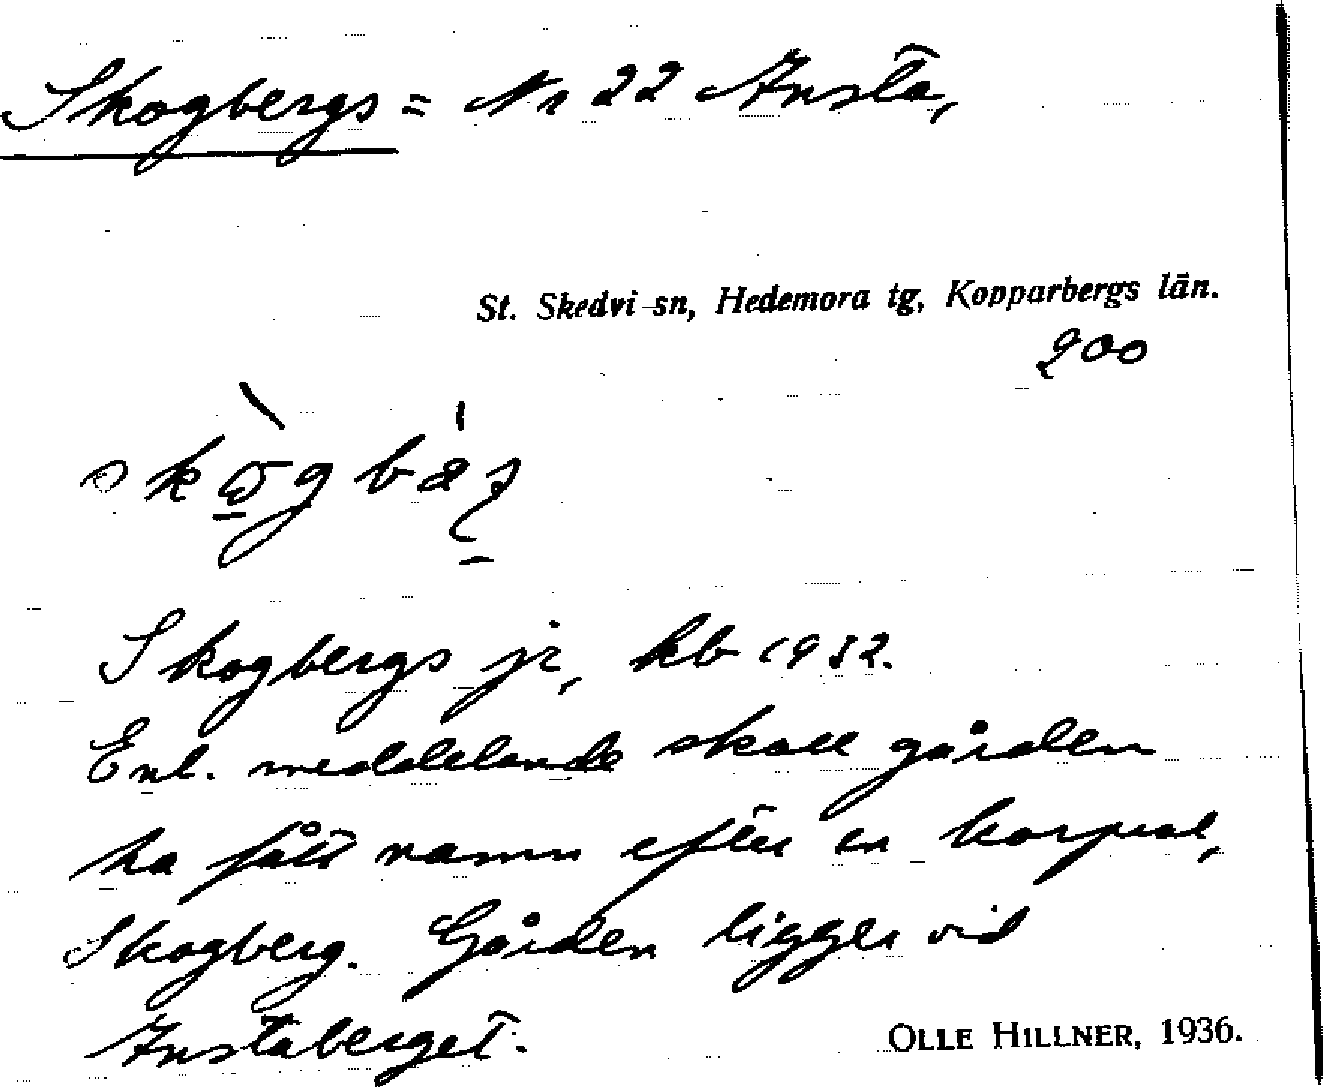 Skogbergs = Nr 22 Insta,
St. Skedvi sn, Hedemora tg, Kopparbergs län.
200
Skogbergs jr, kb 1932.
Enl. meddelande skall gården
ha fått namn efter en korpral,
Skogberg. Gården ligger vid
Instaberget.
OLLE HILLNER, 1936.